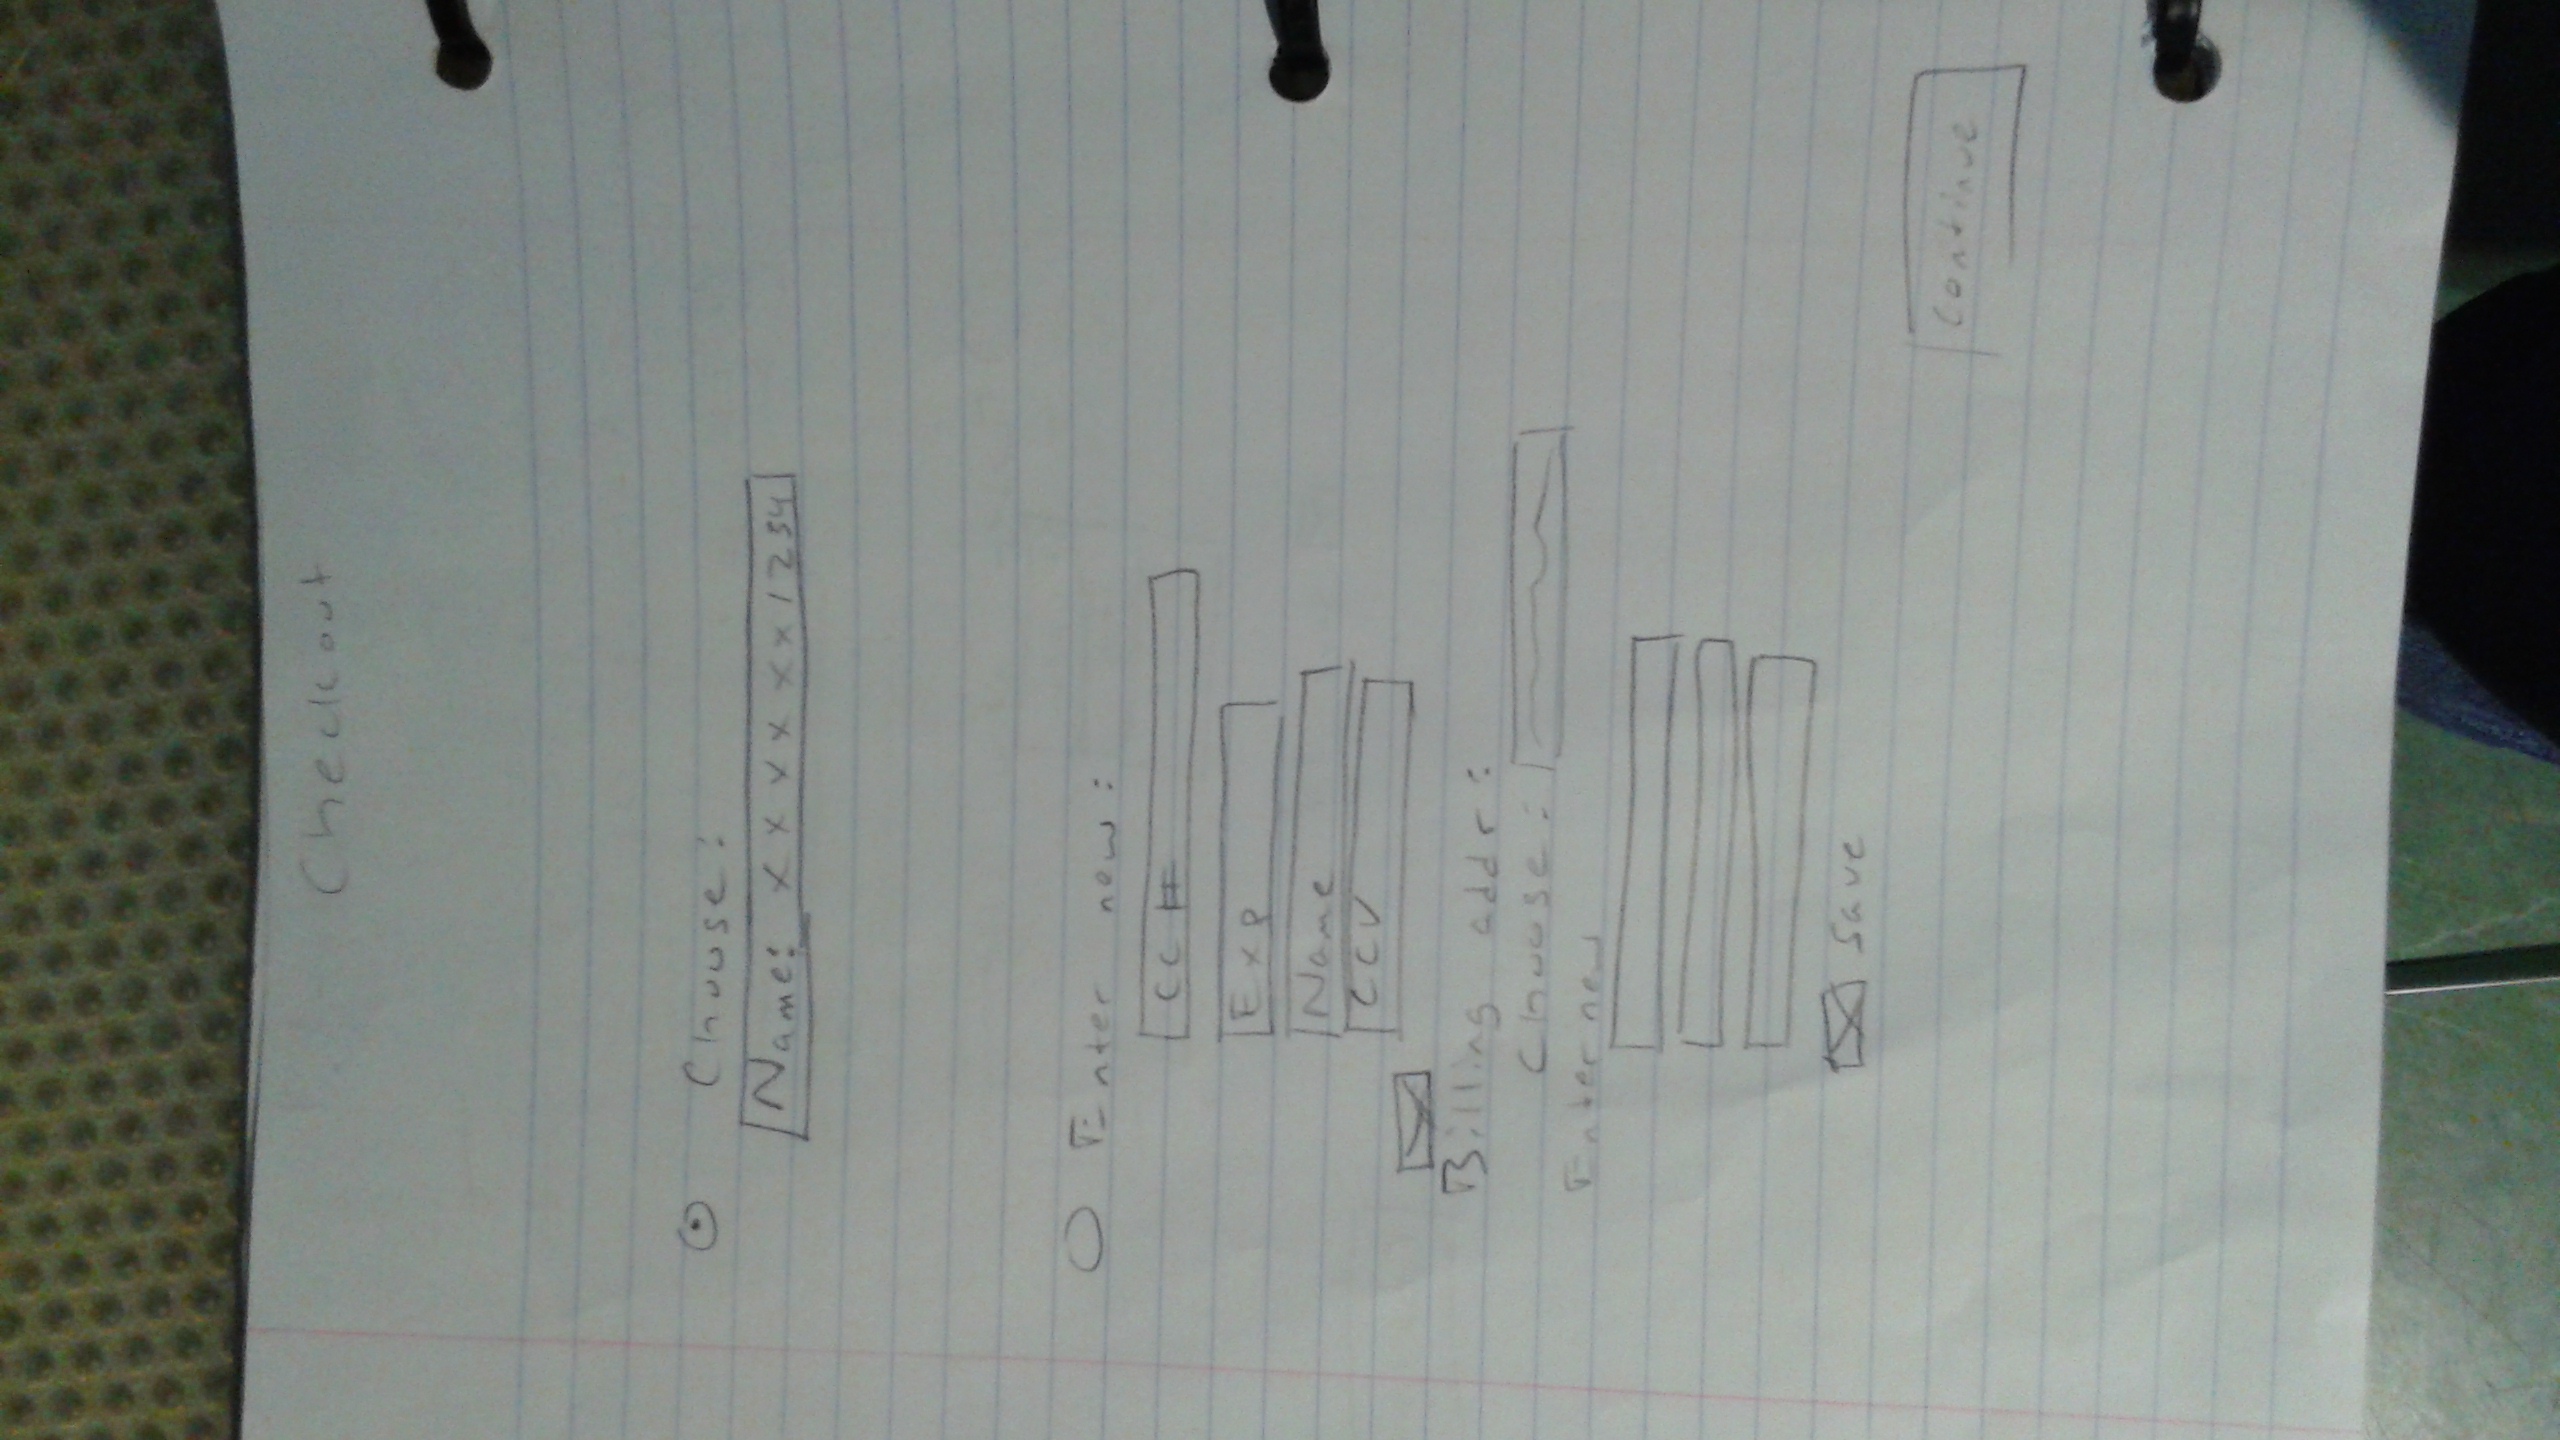 Checkout
Choose:
Name: xxxvxxx1234
Enter new:
CC#
Exp
Name
CCV
Billing addr:
Choose:
Enter new
Save
Continue